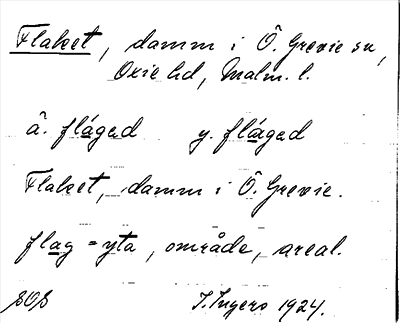 Flaket, damm i Ö. Grevie sn,
Oxie hd, Malm. l.
ä. fláged y. flaged
Flaket, damm i Ö. Grevie.
flag = yta, område, areal.
SOS I. Ingers 1924.